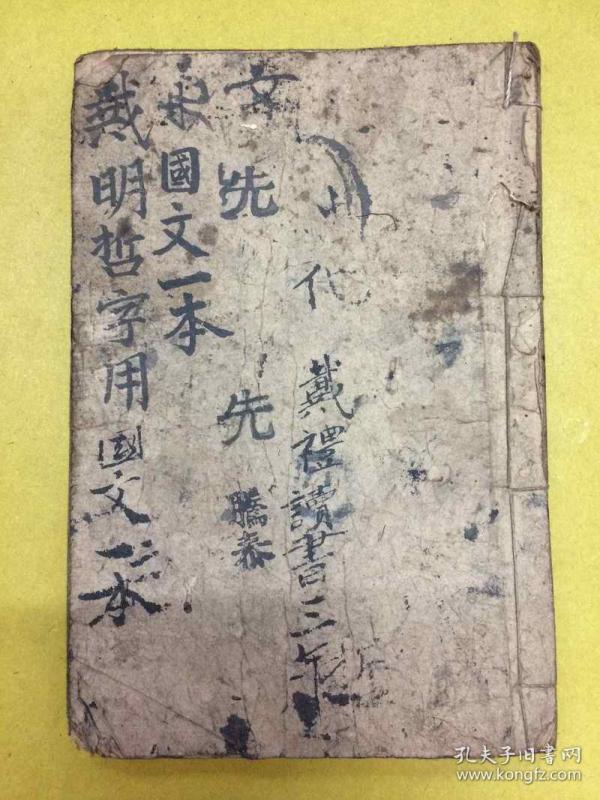 代
戴禮讀書三年
文先先
騰泰
國文一本
戴明哲字用國文一本
孔夫子旧書网
www.kongfz.com